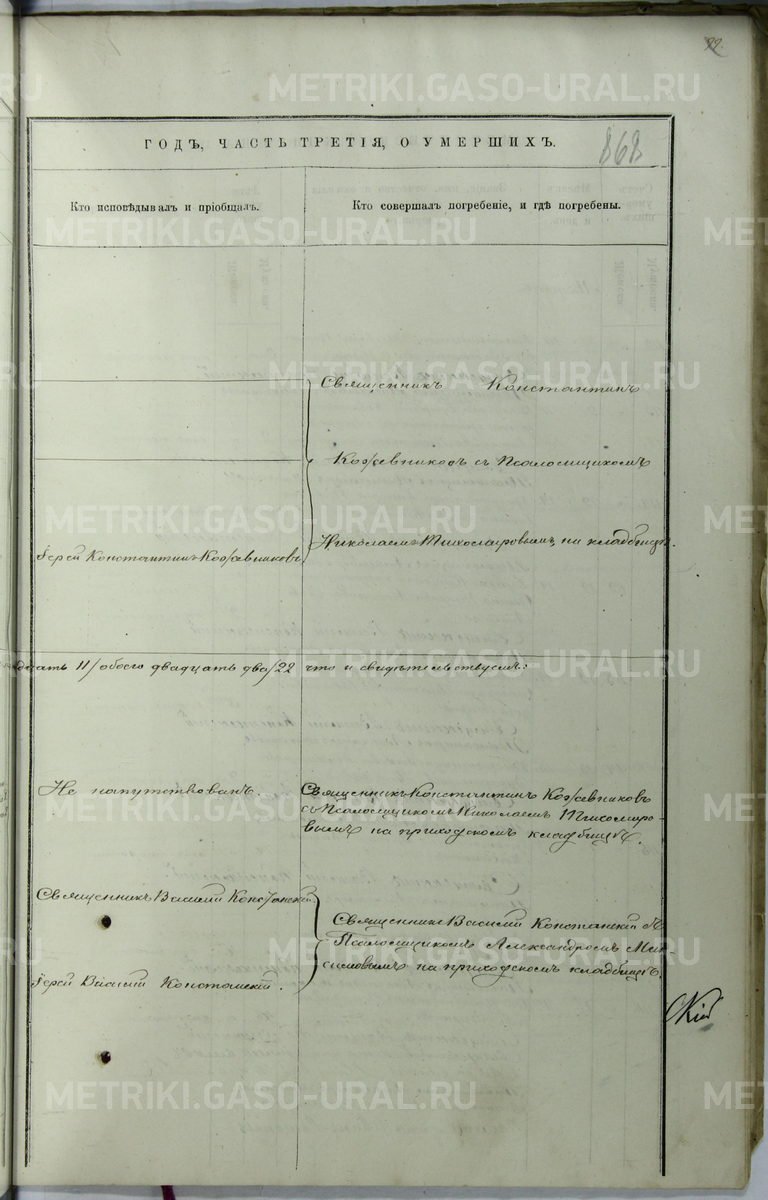 99.
ГОДЪ, ЧАСТЬ ТРЕТІЯ, О УМЕРШИХЪ.
868
Кто исповѣдывалъ и пріобщалъ.
Кто совершалъ погребеніе, и гдѣ погребены.
Священникъ Константинъ
Кожевниковъ съ Псаломщикомъ
Николаемъ Тихомировымъ, на кладбищѣ.
Іерей Константинъ Кожевниковъ
дцать 11/ обоего двадцать два/22 что и свидѣтельствуемъ:
Не напутствованъ.
Священникъ Константинъ Кожевниковъ
съ Псаломщикомъ Николаемъ Тихомиро-
вымъ на приходскомъ кладбищѣ.
Священникъ Василій Констанскій
Іерей Василій Констанскій.
Священникъ Василій Констанскій съ
Псаломщикомъ Александромъ Мак-
симовымъ на приходскомъ кладбищѣ.
METRIKI.GASO-URAL.RU